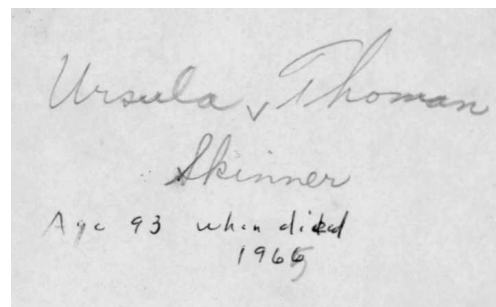 Ursula v Thoman
Skinner
Age 93 when died
1965